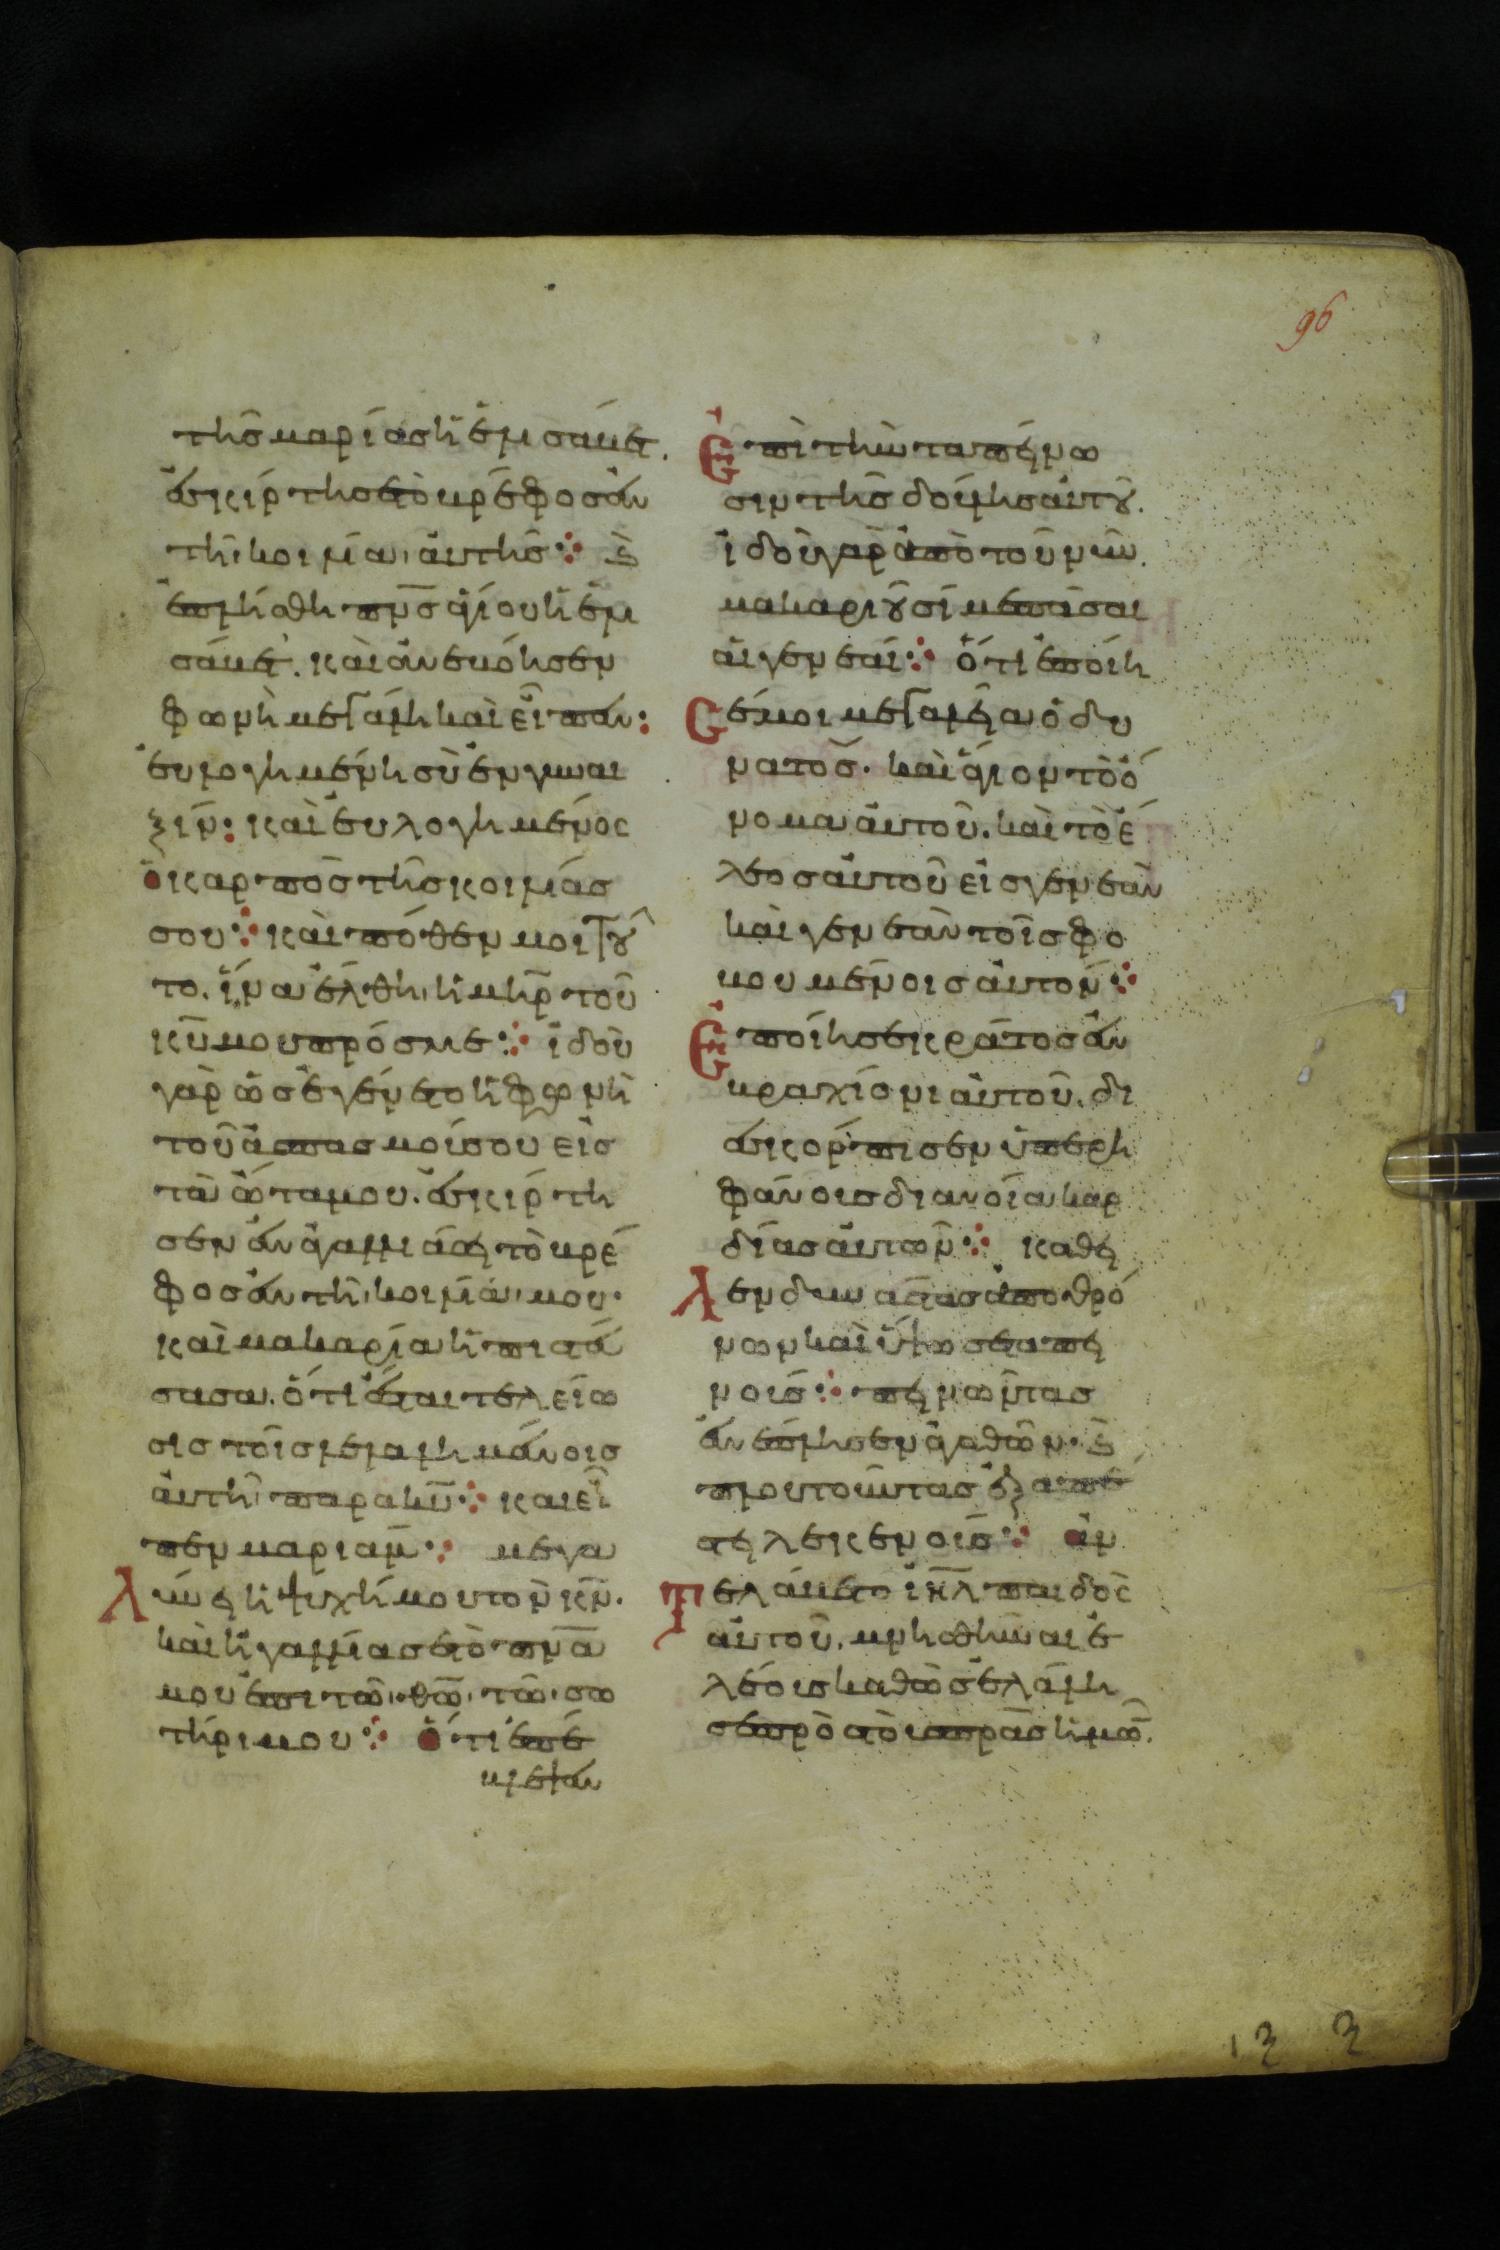 96
τῆς μαρίας ἡ ἐλισάβετ.
ἐσκίρτησε τὸ βρέφος ἐν
τῆ κοιλία αὐτῆς ⁘ ϗ
ἐπλήσθη πνς ἁγίου ἡ ἐλι
σάβετ. καὶ ἀνεβόησεν
φωνῆ μεγάλη καὶ εἶπεν:
εὐλογημένη σὺ ἐν γυναι
ξίν: καὶ εὐλογημένος
ὁ καρπὸς τῆς κοιλίας
σου ⁘ καὶ πόθεν μοι τοῦ
το. ἵνα ἔλθη ἡ μηρ τοῦ
κυ μου πρός με ⁘ ἰδοὺ
γὰρ ὡς ἐγένετο ἡ φωνὴ
τοῦ ἀσπασμοῦ σου εἰς
τὰ ὦτα μου. ἐσκίρτη
σεν ἐν ἀγαλλιάσει τὸ βρέ
φος ἐν τῆ κοιλία μου·
καὶ μακαρία ἡ πιστεύ
σασα. ὅτι ἔσται τελείω
σις τοῖς λελαλημένοις
αὐτῆ παρὰ κυ ⁘ καὶ εἶ
πεν μαριάμ ⁘ μεγα
λύνει ἡ ψυχή μου τὸν κν.
καὶ ἠγαλλίασε τὸ πνα
μου ἐπὶ τῶ θω τῶ σω
τῆρι μου ⁘ ὅτι ἐπέ
βλεψεν
ἐπὶ τὴν ταπείνω
σιν τῆς δούλης αὐτοῦ.
ἰδοὺ γὰρ ἀπὸ τοῦ νῦν.
μακαριοῦσί με πᾶσαι
αἱ γενεαί ⁘ ὅτι ἐποίη
σέ μοι μεγαλεῖα ὁ δυ
νατός. καὶ ἅγιον τὸ ὄ
νομα αὐτοῦ. καὶ τὸ ἔ
λεος αὐτοῦ εἰς γενεὰν
καὶ γενεὰν τοῖς φο
βουμένοις αὐτόν ⁘
ἐποίησε κράτος ἐν
βραχίονι αὐτοῦ. δι
εσκόρπισεν ὑπερη
φάνους διανοία καρ
δίας αὐτῶν ⁘ καθεῖ
λεν δυνάστας ἀπὸ θρό
νων καὶ ὕψωσε ταπει
νούς ⁘ πεινῶντας
ἐνέπλησεν ἀγαθῶν. ϗ
πλουτοῦντας ἐξαπέ
στειλε κενούς ⁘ ἀν
τελάβετο ιηλ παιδὸς
αὐτοῦ. μνησθῆναι ἐ
λέους καθὼς ἐλάλη
σε πρὸς τοὺς πρας ἡμῶ.